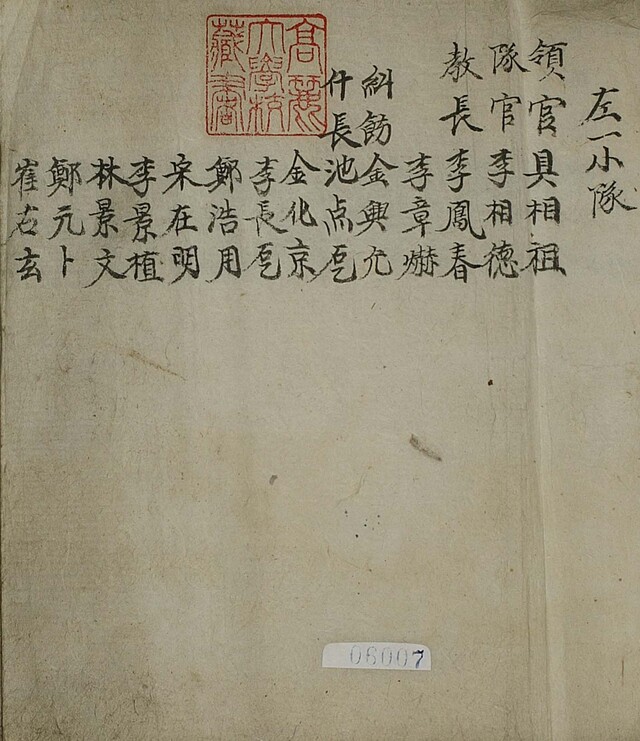 左一小隊
領官具相祖
隊官李相德
教長李鳳春
李章爀
糾飭金興允
什長池点乭
金化京
李長乭
鄭浩用
宋在明
李景植
林景文
鄭元卜
崔右玄
高麗大學校藏書
06007